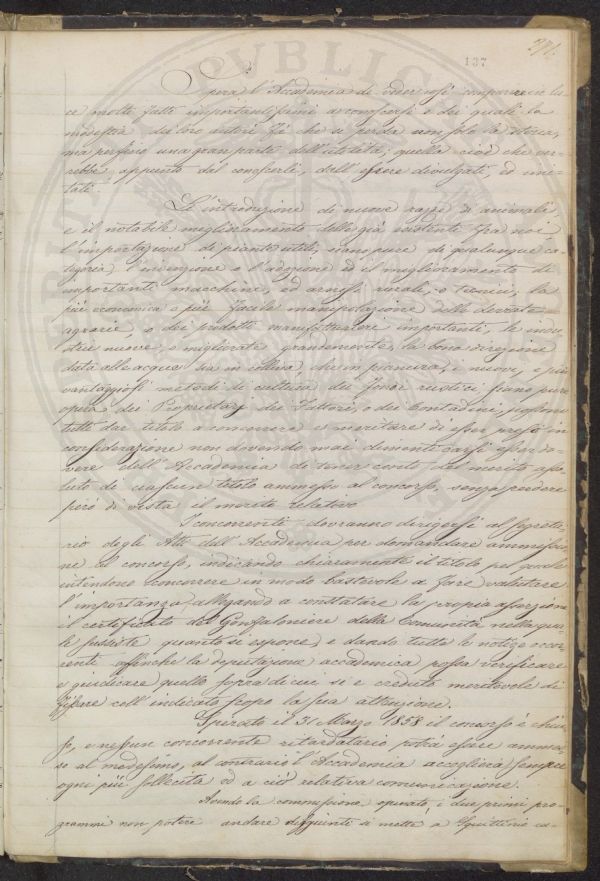 271.
137
Spera l'Accademia di veder così comparire in lu-
ce molti fatti importantissimi sconosciuti e dei quali la
modestia dei loro autori fà che si perda non solo la storia,
ma perfino una gran parte dell'utilità; quella cioè che ver-
rebbe appunto dal conoscerli, dall'essere divulgati, ed imi-
tati.
L'introduzione di nuove razze di animali
e il notabile miglioramento delle già esistenti fra noi
l'importazione di piante utili, siano pure di qualunque ca-
tegoria, l'invenzione e l'adozione ed il miglioramento di
importanti macchine, ed arnesi rurali o tecnici, la
più economica e più facile manipolazione delle derrate
agrarie, o dei prodotti manifatturieri importanti, le indu-
strie nuove, e migliorate grandemente, la bona direzione
data alle acque sia in collina, che in pianura, i nuovi, e più
vantaggiosi metodi di cultura dei fondi rustici siano pure
opera dei Proprietarj dei Fattori, o dei Contadini, possono
tutti dar titolo a concorrere e meritare di esser presi in
considerazione non dovendo mai dimenticarsi esser do-
vere dell'Accademia di tener conto del merito asso-
luto di ciascun titolo ammesso al concorso, senza perdere
però di vista il merito relativo
I concorrenti dovranno dirigersi al Segreta-
rio degli Atti dell'Accademia per domandare ammissio-
ne al concorso, indicando chiaramente il titolo pel quale
intendono concorrere in modo bastevole a fare valutare
l'importanza, allegando a constatare la propria asserzione
il certificato del Gonfaloniere della Comunità nella qua-
le sussiste quanto si espone, e dando tutte le notizie occor-
renti affinche la deputazione accademica possa verificare
e giudicare quello sopra di cui si è creduto meritevole di
fissare coll'indicato scopo la sua attenzione.
Spirato il 31 Marzo 1858 il concorso è chiu-
so, e nessun concorrente ritardatario potrà essere ammes-
so al medesimo, al contrario l'Accademia accoglierà sempre
ogni più sollecita ed a ciò relativa comunicazione.
Avendo la commissione opinato, i due primi pro-
grammi non potere andare disgiunti si mette a Squittinio es-